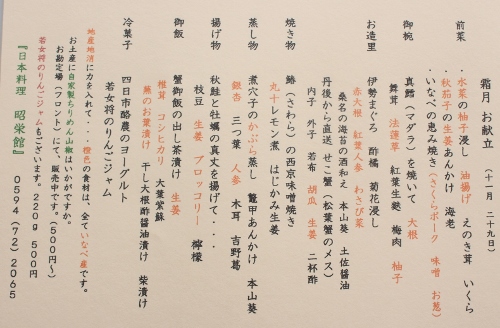 霜月 お献立 (十一月 二十九日)
前菜 ・水菜の柚子浸し 油揚げ えのき茸 いくら
・秋茄子の生姜あんかけ 海老
・いなべの恵み焼き(さくらポーク 味噌 お葱)
御椀 真鱈(マダラ)を焼いて 大根
舞茸 法蓮草 紅葉生麩 梅肉 柚子
お造里 伊勢まぐろ 酢橘 菊花浸し
赤大根 紅葉人参 わさび菜
桑名の海苔の酒和え 本山葵 土佐醤油
丹後から直送 せこ蟹(松葉蟹のメス)
内子 外子 若布 胡瓜 生姜 二杯酢
焼き物 鰆(さわら)の西京味噌焼き
丸十レモン煮 はじかみ生姜
蒸し物 煮穴子のかぶら蒸し 鼈甲あんかけ 本山葵
銀杏 三つ葉 人参 木耳 吉野葛
揚げ物 秋鮭と牡蠣の真丈を揚げて・・・
枝豆 生姜 ブロッコリー 檸檬
御飯 蟹御飯の出し茶漬け 生姜
椎茸 コシヒカリ 大葉紫蘇
蕪のお葉漬け 干し大根酢醤油漬け 柴漬け
冷菓子 四日市酪農のヨーグルト
若女将のりんごジャム
地産地消に力を入れて・・・橙色の食材は、全ていなべ産です。
お土産に自家製ちりめん山椒はいかがですか。
お勘定場(フロント)にて、販売中です。(500円〜)
若女将のりんごジャムもございます。220g 500円
『日本料理 昭栄館』 0594(72)2065